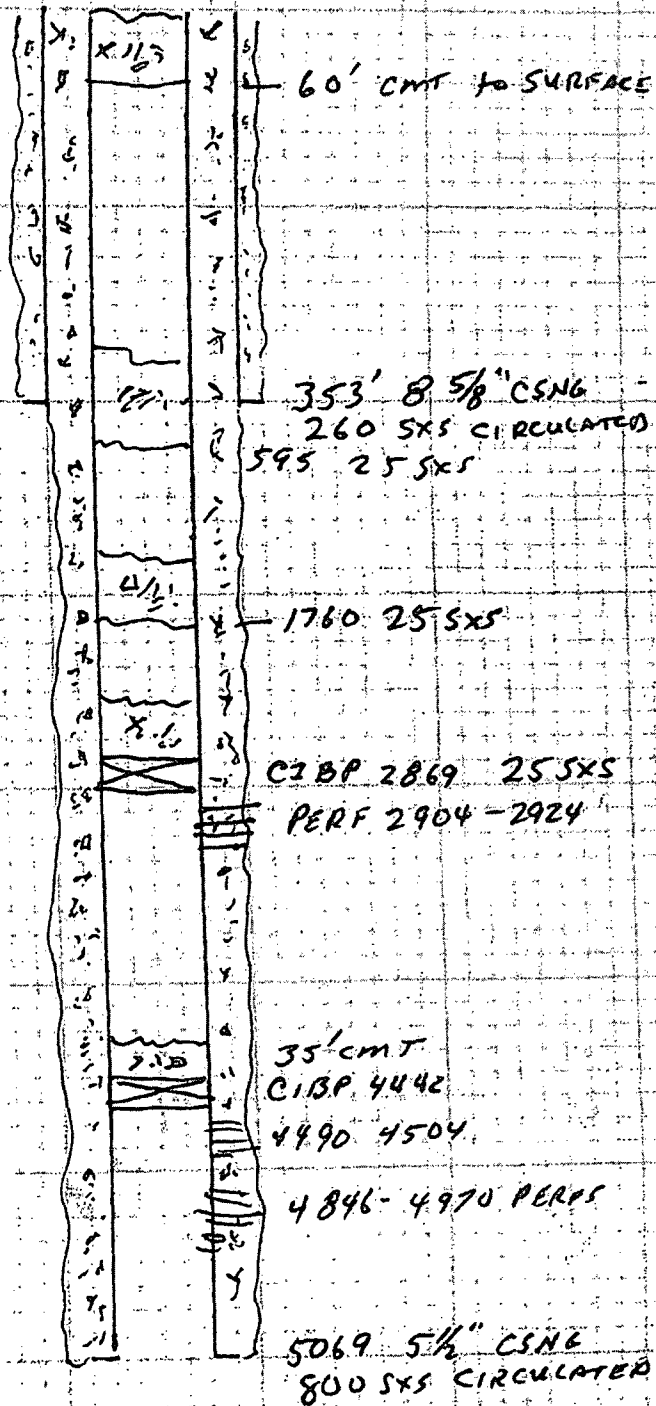 60' CMT to SURFACE
353' 8 5/8" CSNG
260 SXS CIRCULATED
595 25 SXS
1760 25 SXS
CIBP 2869 25 SXS
PERF 2904-2924
35' CMT
CIBP 4442
4490 4504
4846-4970 PERFS
5069 5 1/2" CSNG
800 SXS CIRCULATED